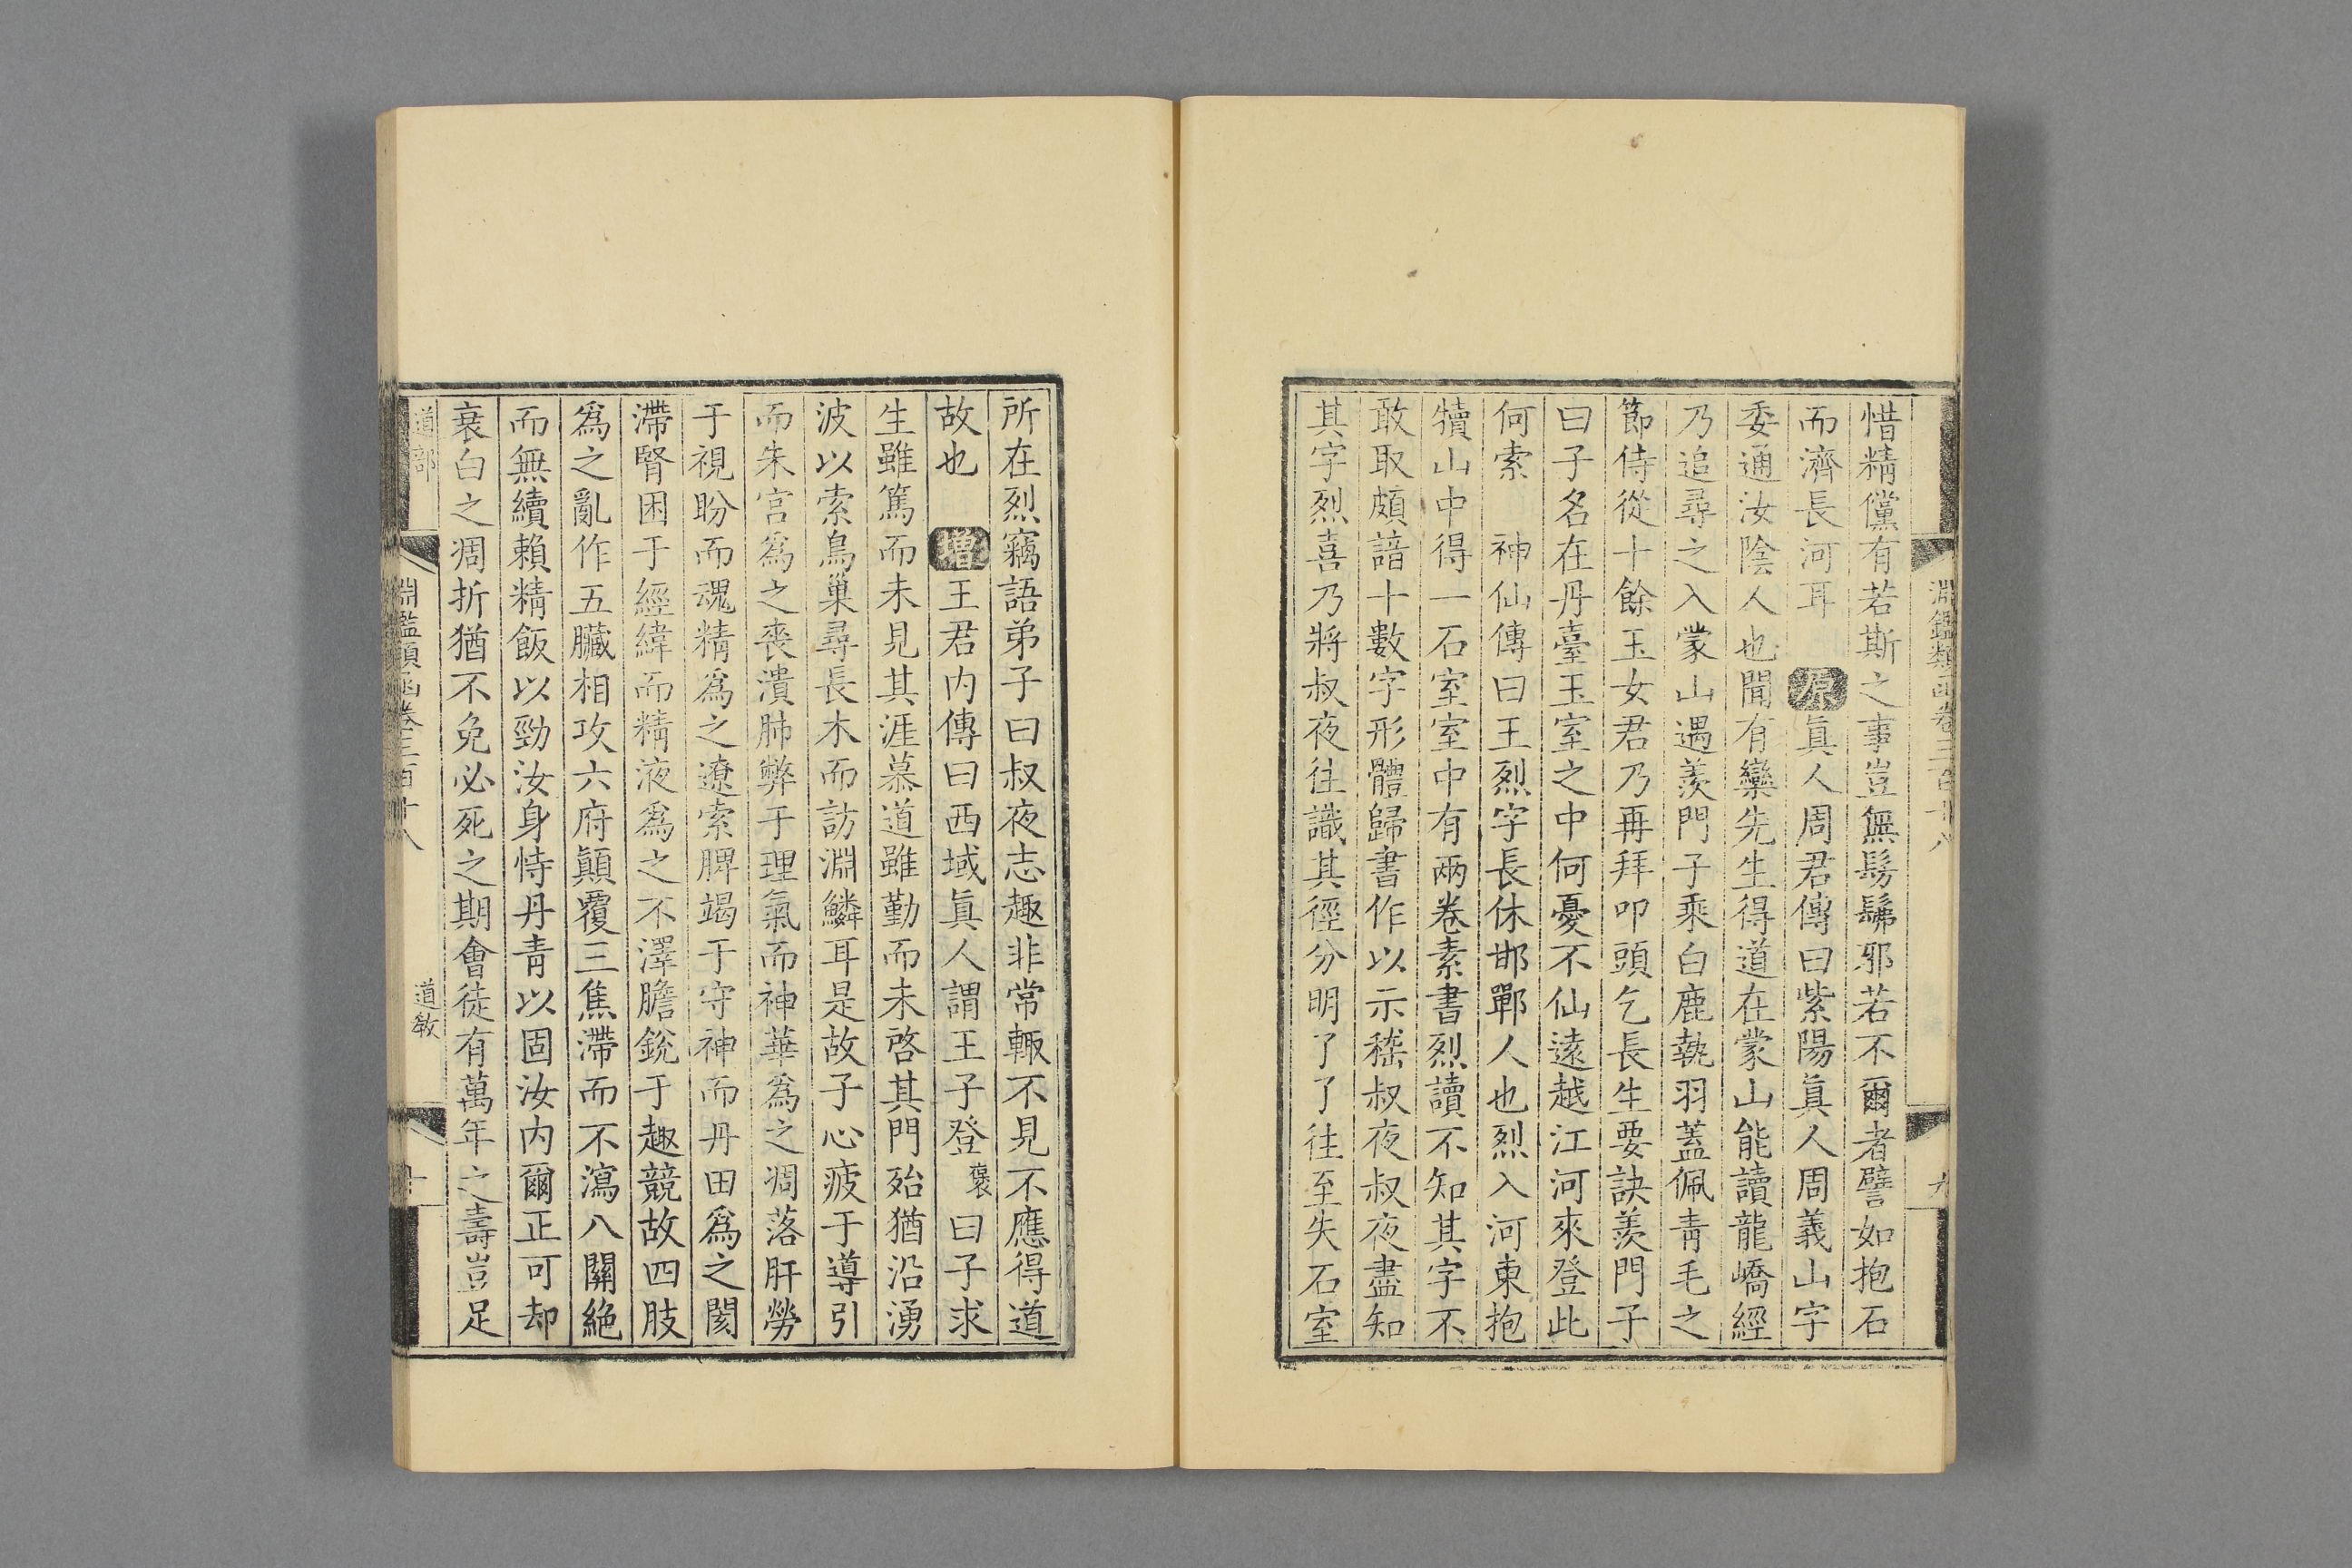 淵鑑類函卷三百十八
九
惜精儻有若斯之事豈無髣髴邪若不爾者譬如抱石
而濟長河耳　原眞人周君傳曰紫陽眞人周義山字
委通汝陰人也聞有欒先生得道在蒙山能讀龍嶠經
乃追尋之入蒙山遇羨門子乘白鹿執羽蓋佩青毛之
節侍從十餘玉女君乃再拜叩頭乞長生要訣羨門子
曰子名在丹臺玉室之中何憂不仙遠越江河來登此
何索　神仙傳曰王烈字長休邯鄲人也烈入河東抱
犢山中得一石室室中有兩卷素書烈讀不知其字不
敢取頗諳十數字形體歸書作以示嵇叔夜叔夜盡知
其字烈喜乃將叔夜往識其徑分明了了往至失石室
所在烈竊語弟子曰叔夜志趣非常輙不見不應得道
故也　增王君内傳曰西域眞人謂王子登褒曰子求
生雖篤而未見其涯慕道雖勤而未啓其門殆猶沿湧
波以索鳥巢尋長木而訪淵鱗耳是故子心疲于導引
而朱宮爲之喪潰肺弊于理氣而神華爲之凋落肝勞
于視盼而魂精爲之遼索脾竭于守神而丹田爲之閡
滯腎困于經緯而精液爲之不澤膽銳于趣競故四肢
爲之亂作五臟相攻六府顚覆三焦滯而不瀉八關絶
而無續賴精飯以勁汝身恃丹靑以固汝内爾正可却
衰白之凋折猶不免必死之期會徒有萬年之壽豈足
道部
淵鑑類函卷三百十八
道敘
十